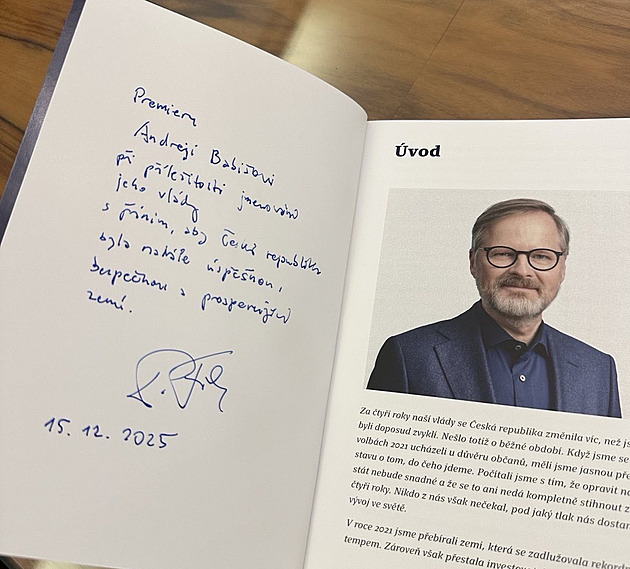 Premieru
Andreji Babišovi
při příležitosti jmenování
jeho vlády
s přáním, aby Česká republika
byla nadále úspěšnou,
bezpečnou a prosperující
zemí.
P. Fiala
15. 12. 2025
Úvod
Za čtyři roky naší vlády se Česká republika změnila víc, než js
byli doposud zvyklí. Nešlo totiž o běžné období. Když jsme se
volbách 2021 ucházeli u důvěru občanů, měli jsme jasnou pře
stavu o tom, do čeho jdeme. Počítali jsme s tím, že opravit na
stát nebude snadné a že se to ani nedá kompletně stihnout z
čtyři roky. Nikdo z nás však nečekal, pod jaký tlak nás dostan
vývoj ve světě.
V roce 2021 jsme přebírali zemi, která se zadlužovala rekordn
tempem. Zároveň však přestala investov